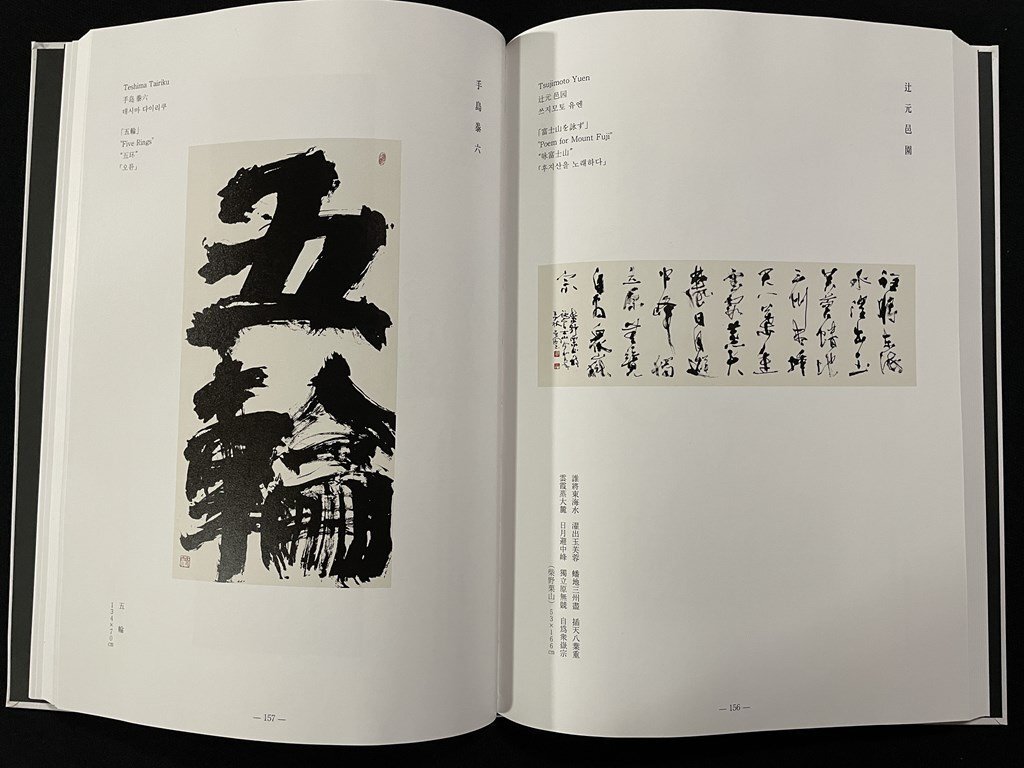 Teshima Tairiku
手島 泰六
데시마 다이리쿠
「五輪」
"Five Rings"
"五环"
「오륜」
手島泰六
五輪
五輪
134×70cm
— 157 —
Tsujimoto Yuen
辻元 邑园
쓰지모토 유엔
「富士山を詠ず」
"Poem for Mount Fuji"
"咏富士山"
「후지산을 노래하다」
辻元邑園
誰將東海水 濯出玉芙蓉 蟠地三州盡 插天八葉重
雲霞蒸大麓 日月避中峰 獨立原無競 自爲衆嶽宗
(柴野栗山) 53×166cm
— 156 —